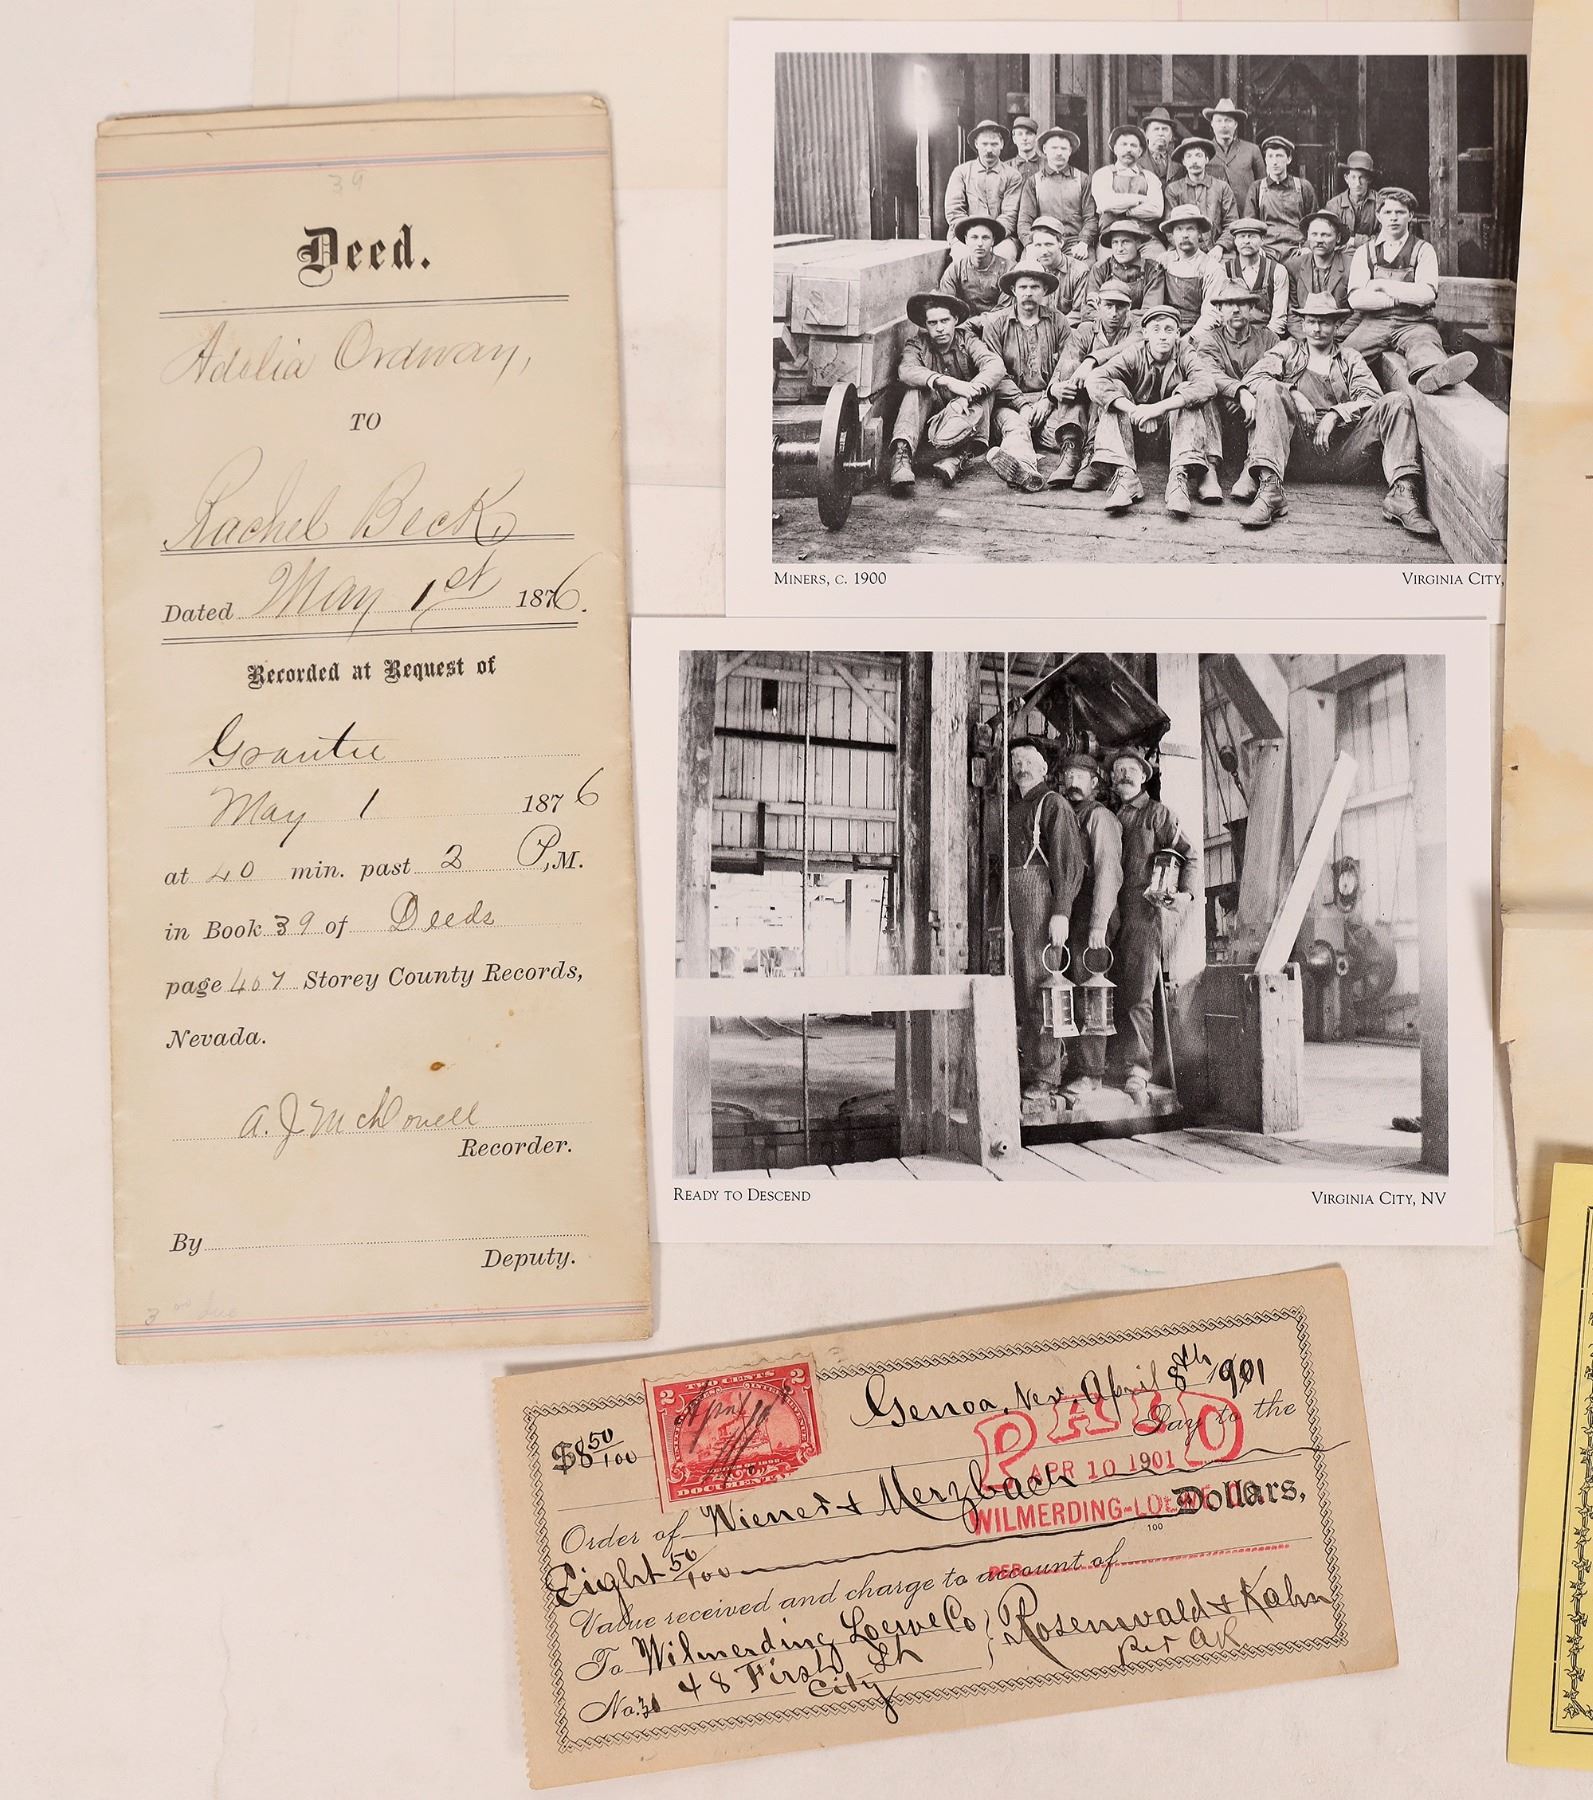 39
Deed.
Adelia Ordway,
TO
Rachel Beck,
Dated May 1st 1876.
Recorded at Request of
Grantee
May 1 1876
at 40 min. past 2 P,M.
in Book 39 of Deeds
page 407 Storey County Records,
Nevada.
A. J McDowell
Recorder.
By
Deputy.
3 00 due
MINERS, C. 1900
VIRGINIA CITY,
READY TO DESCEND
VIRGINIA CITY, NV
2 TWO CENTS 2
DOCUMENTARY
Genoa, Nev. April 8th 1901
$8 50/100
Pay to the
PAID
APR 10 1901
WILMERDING-LOEWE CO.
PER
Order of Wiener & Merzbach
Eight 50/100 100 Dollars,
Value received and charge to account of
To Wilmerding Loewe Co } Rosenwald & Kahn
No. 31 48 First St per AK
City